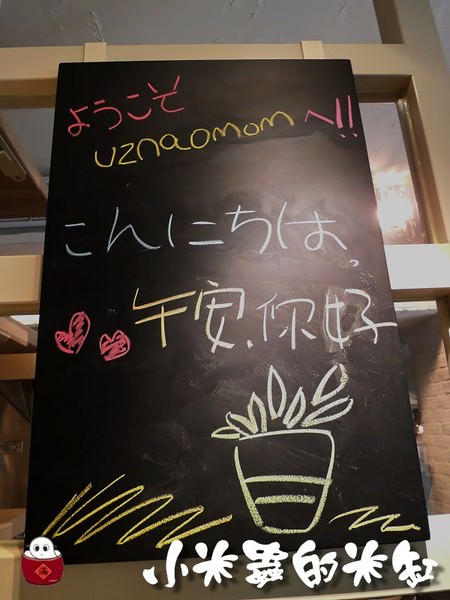 ようこそ
uznaomom へ!!
こんにちは。
午安、你好
小米蟲的米缸